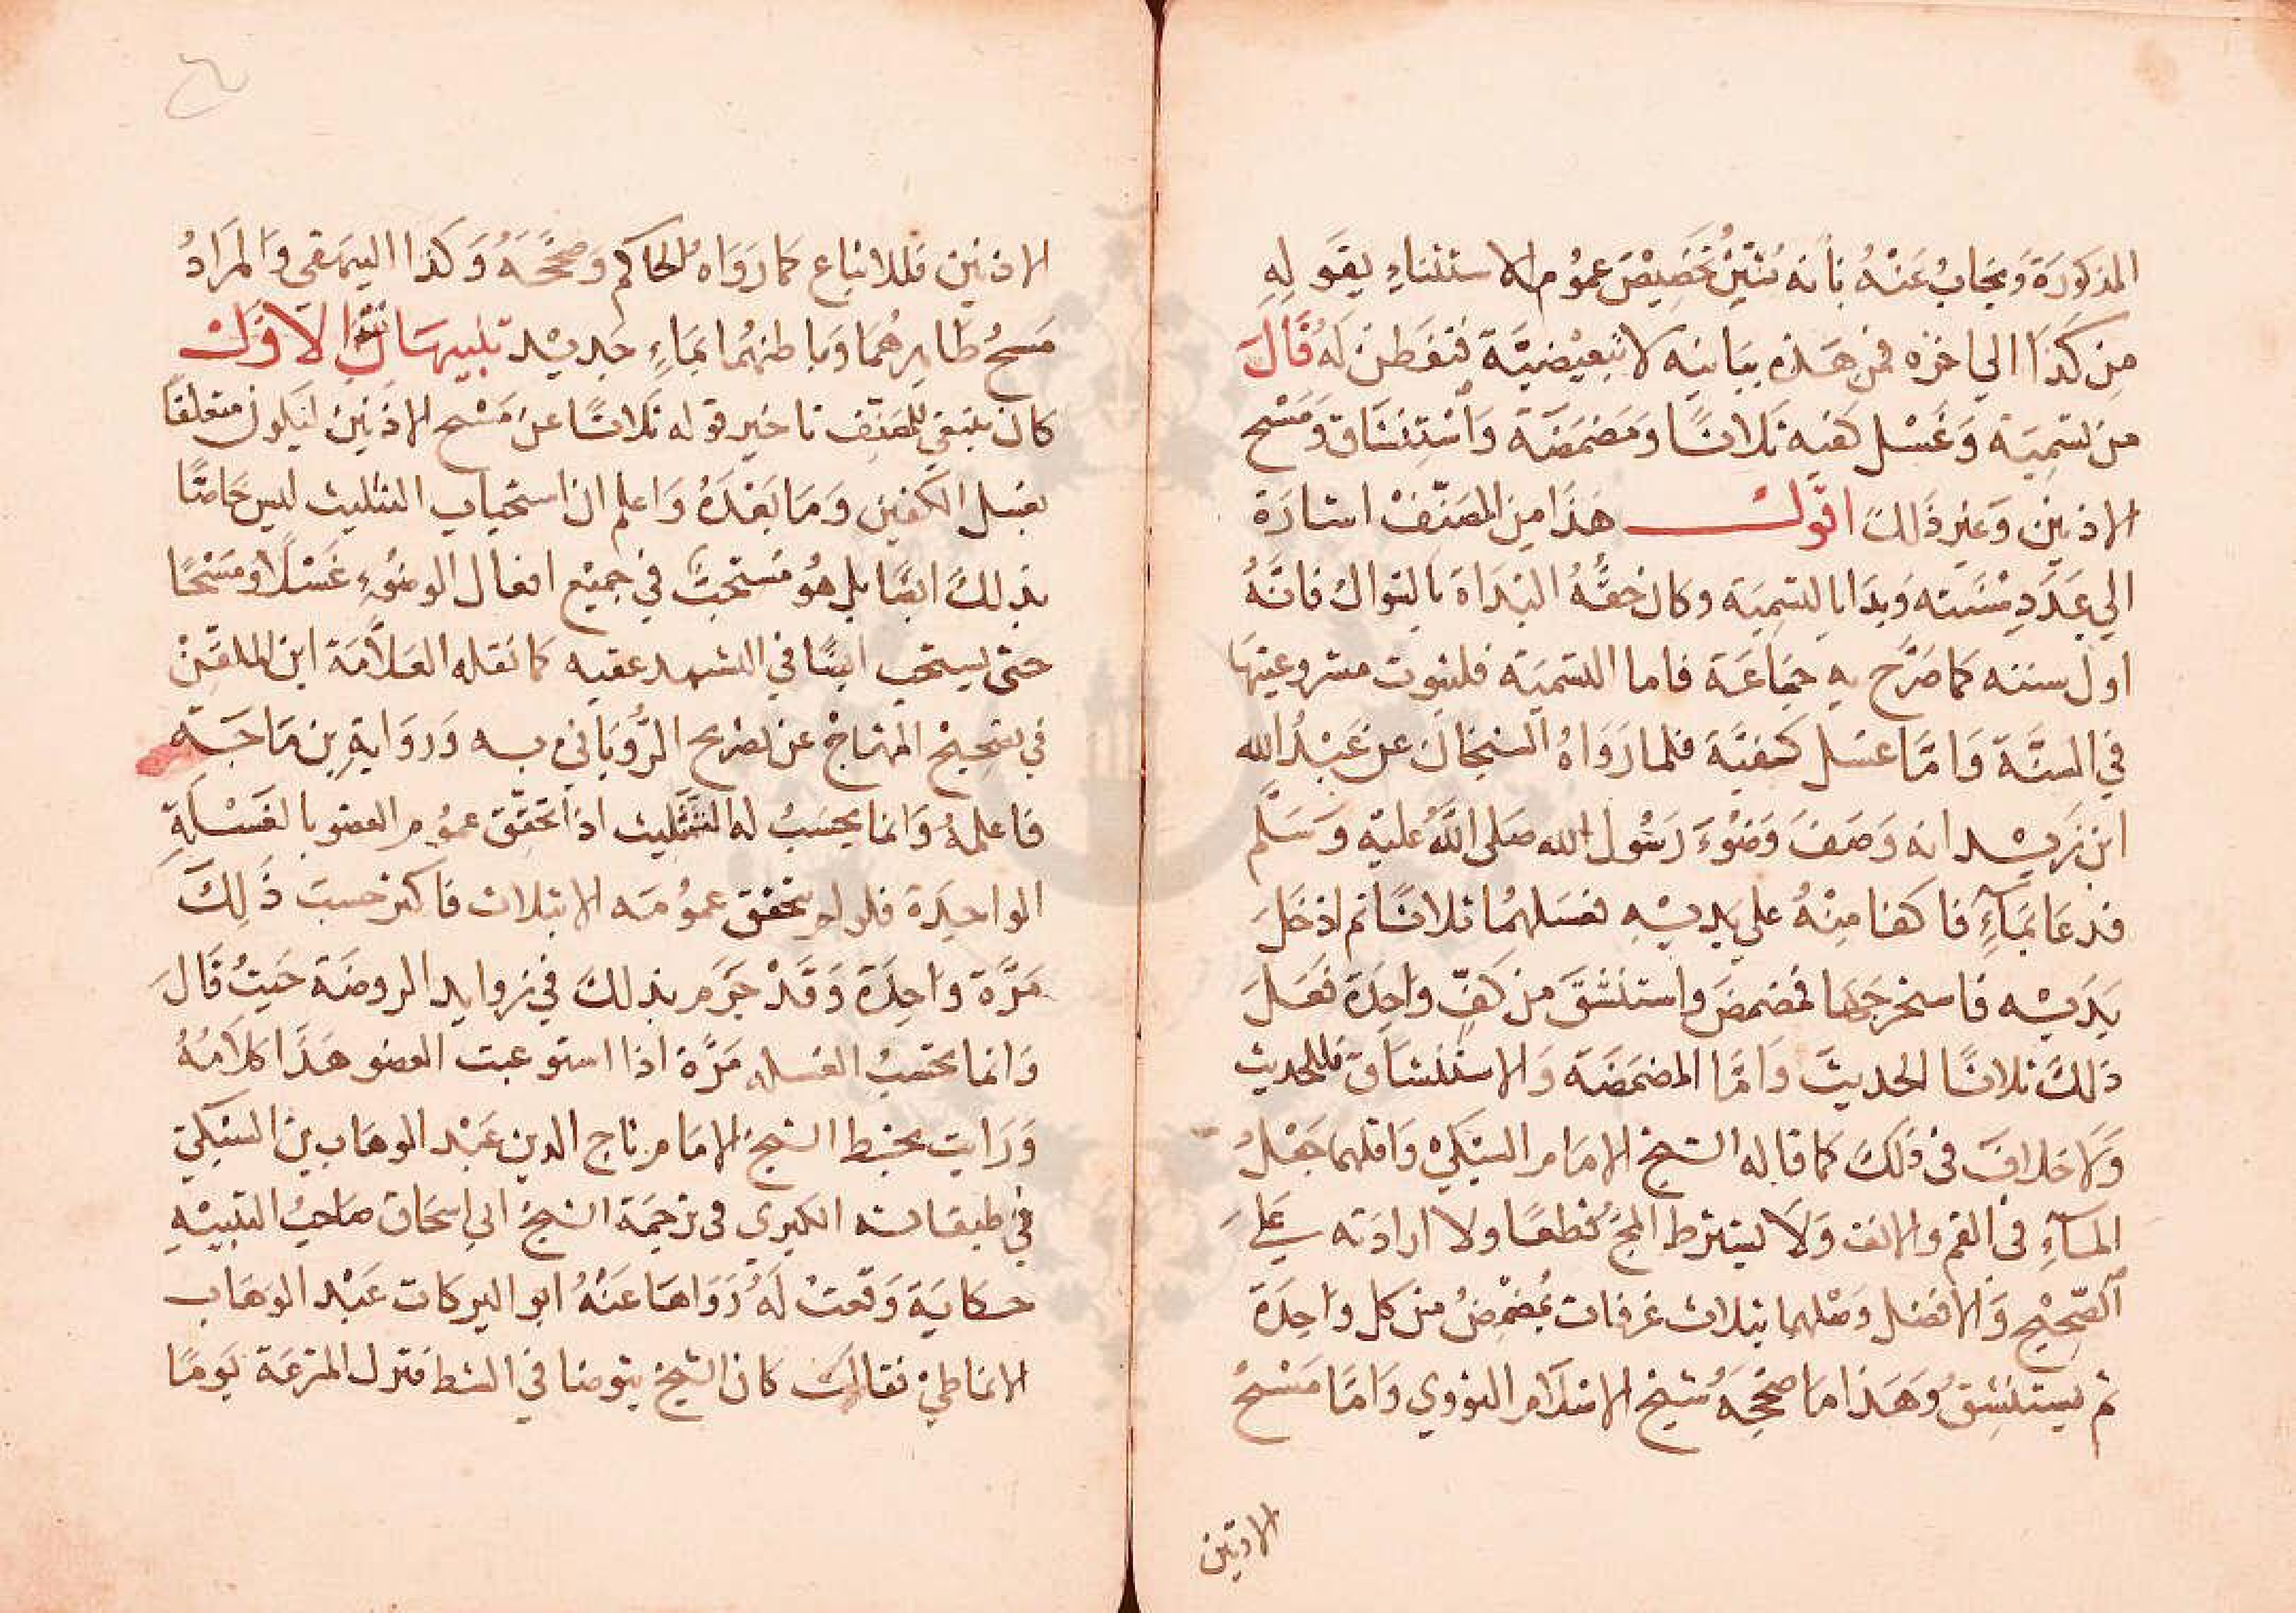 المذكورة ويجاب عنه بأنه تبين تخصيص عموم الاستثناء بقوله
من كذا الي اخره فمن هذه بيانيه لا تبعيضية فتفطن له قال
من تسمية وغسل كفيه ثلاثا ومضمضة واستنشاق ومسح
الاذنين وغير ذلك اقول هذا من المصنف اشارة
الي عدد سننه وبدا بالتسمية وكان حقه البداة بالسواك فانه
اول سننه كما صرح به جماعة فاما التسمية فلثبوت مشروعيتها
في السنة واما غسل كفية فلما رواه الشيخان عن عبد الله
ابن زيد انه وصف وضوء رسول الله صلى الله عليه وسلم
فدعا بماء فاكفا منه علي يديه فغسلهما ثلاثا ثم ادخل
يديه فاستخرجها فمضمض واستنشق من كف واحدة فعل
ذلك ثلاثا الحديث واما المضمضة والاستنشاق فللحديث
ولا خلاف في ذلك كما قاله الشيخ الامام السبكي واقلهما جعل
الماء في الفم والانف ولا يشترط المج قطعا ولا ادارته علي
الصحيح والافضل وصلهما بثلاث غرفات يمضمض من كل واحدة
ثم يستنشق وهذا ما صححه شيخ الاسلام النووي واما مسح
الاذنين
الاذنين فللاتباع كما رواه الحاكم وصححه وكذا البيهقي والمراد
مسح ظاهرهما وباطنهما بماء جديد تنبيهات الاول
كان ينبغي للمصنف تاخير قوله ثلاثا عن مسح الاذنين ليكون متعلقا
بغسل الكفين وما بعده واعلم ان استحباب التثليث ليس خاصا
بذلك ايضا بل هو مستحب في جميع افعال الوضوء غسلا ومسحا
حتى يستحب ايضا في التشهد عقيبه كما نقله العلامة ابن الملقن
في تصحيح المنهاج عن تصريح الروياني به ورواية بن ماجة
فاعلمه وانما يحسب له التثليث اذا تحقق عموم العضو بالغسلة
الواحدة فلو لم يتحقق عمومه الا بثلاث فاكثر حسبت ذلك
مرة واحدة وقد جزم بذلك في زوايد الروضة حيث قال
وانما تحسب الغسله مرة اذا استوعبت العضو هذا كلامه
ورايت بخط الشيخ الامام تاج الدين عبد الوهاب بن السبكي
في طبقاته الكبري في ترجمة الشيخ ابي اسحاق صاحب التنبيه
حكاية وقعت له رواها عنه ابو البركات عبد الوهاب
الانماطي فقال كان الشيخ يتوضا في الشط فنزل المشرعة يوما